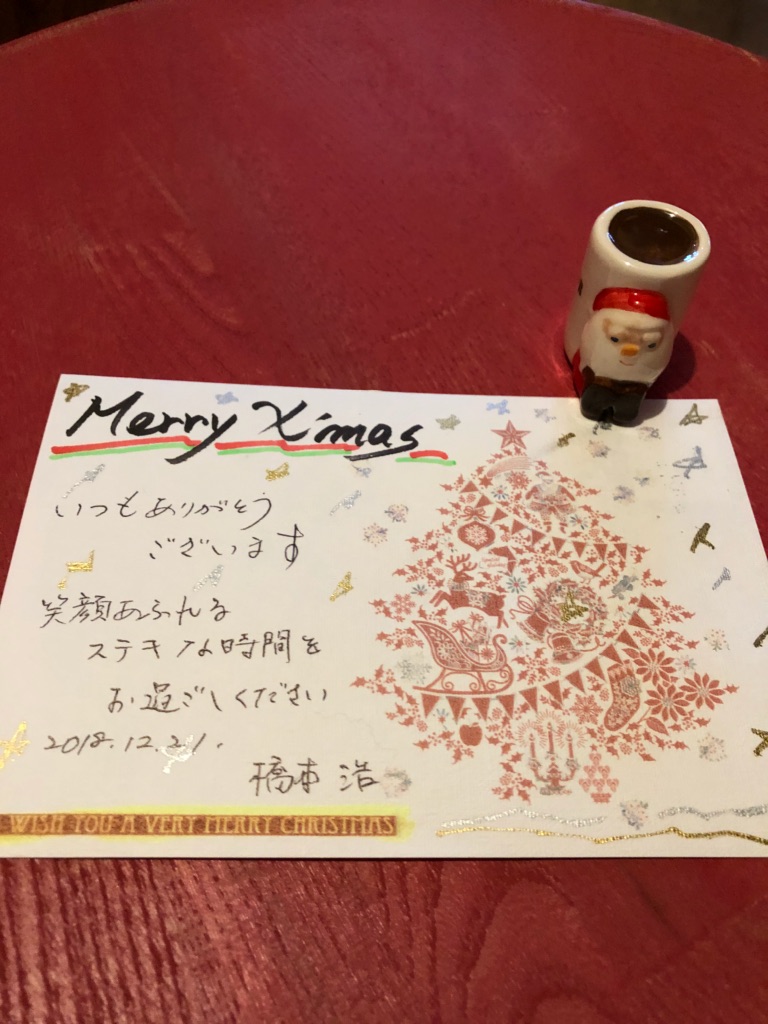 Merry X'mas
いつもありがとう
ございます
笑顔あふれる
ステキな時間を
お過ごしください
2018.12.21.
橋本 浩
WISH YOU A VERY MERRY CHRISTMAS